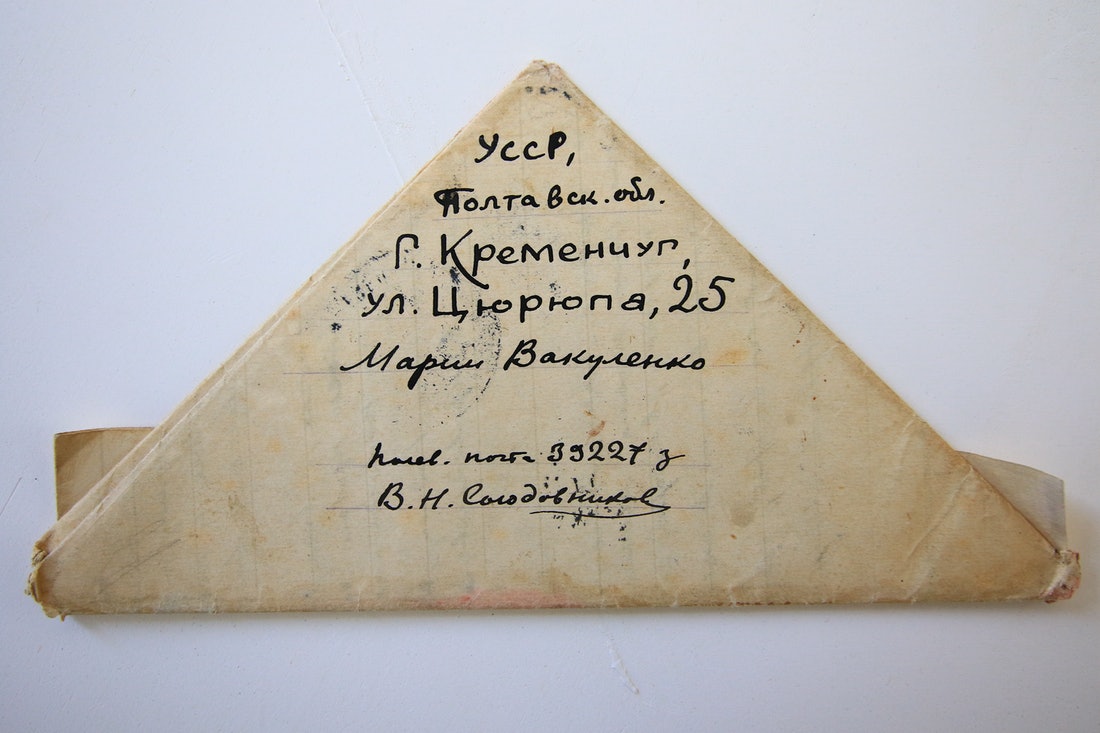 УССР,
Полтавск. обл.
Г. Кременчуг,
ул. Цюрюпа, 25
Марии Вакуленко
полев. почта 39227 з
В. Н. Солодовников